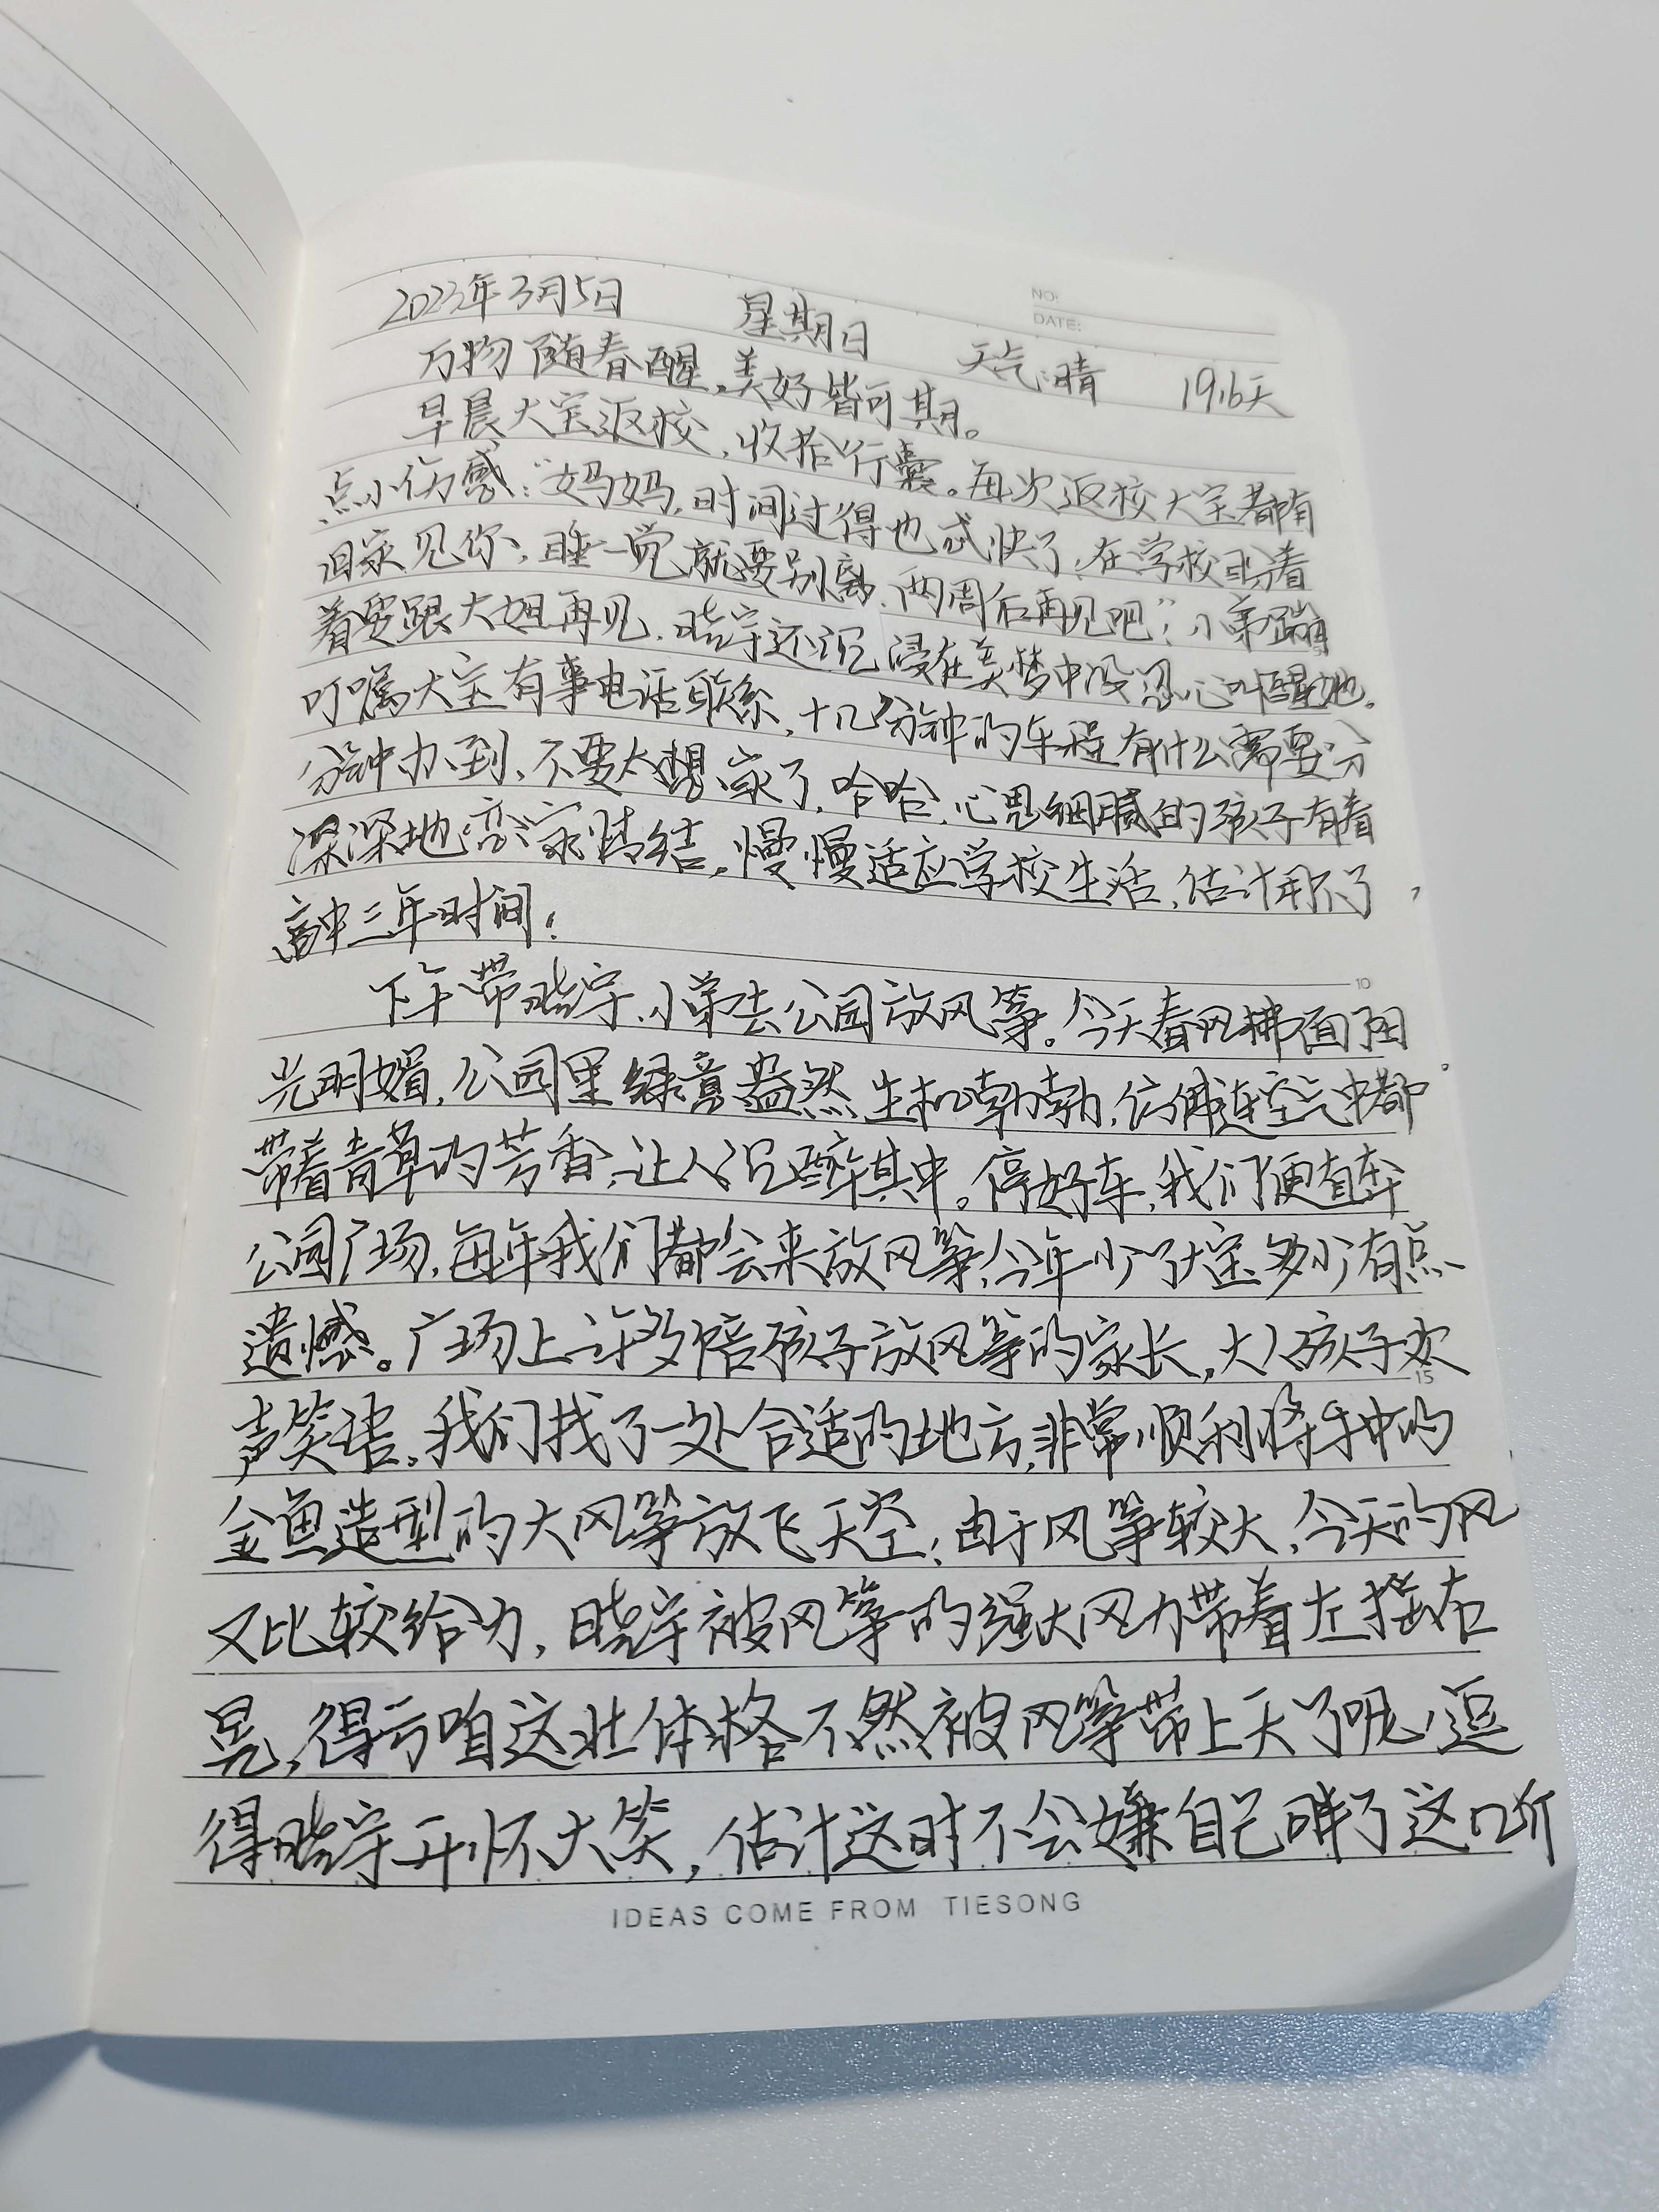 NO:
DATE:
2023年3月5日 星期日 天气:晴 1916天
万物随春醒,美好皆可期。
早晨大宝返校,收拾行囊。每次返校大宝都有
点小伤感:“妈妈,时间过得也忒快了,在学校盼着
回家见你,睡一觉就要别离,两周后再见吧”;小弟蹦
着要跟大姐再见,晓宇还沉浸在美梦中没忍心叫醒她。
叮嘱大宝有事电话联系,十几分钟的车程有什么需要分
分钟办到,不要太想家了,哈哈,心思细腻的孩子有着
深深地恋家情结。慢慢适应学校生活,估计用不了
高中三年时间!
10
下午带晓宇、小弟去公园放风筝。今天春风拂面阳
光明媚,公园里绿意盎然,生机勃勃,仿佛连空气中都
带着青草的芳香,让人沉醉其中。停好车,我们便直奔
公园广场,每年我们都会来放风筝,今年少了大宝多少有点
遗憾。广场上许多陪孩子放风筝的家长,大人孩子欢
15
声笑语。我们找了一处合适的地方,非常顺利将手中的
金鱼造型的大风筝放飞天空;由于风筝较大,今天的风
又比较给力,晓宇被风筝的强大风力带着左摇右
晃,得亏咱这壮体格不然被风筝带上天了呢,逗
得晓宇开怀大笑,估计这时不会嫌自己胖了这
IDEAS COME FROM TIESONG